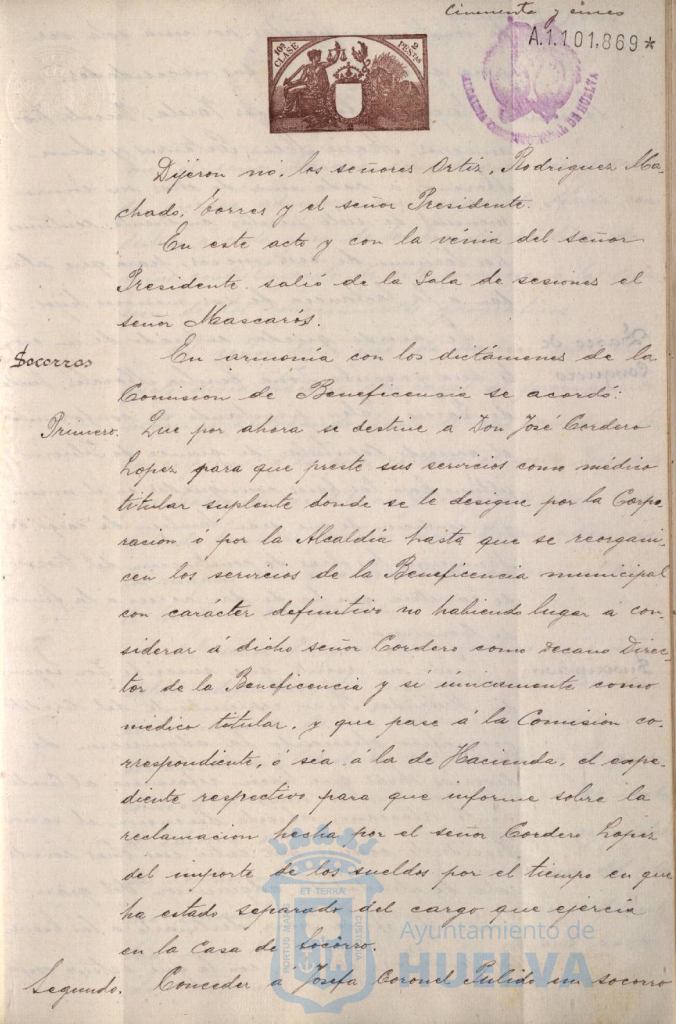 Cincuenta y cinco
A.1.101.869*
10ª CLASE
2 PESETAS
ALCALDIA CONSTITUCIONAL DE HUELVA
Dijéron no, los señores Ortiz, Rodriguez Ma-
chado, Torres y el señor Presidente.
En este acto y con la vénia del señor
Presidente salió de la Sala de sesiones el
señor Mascarós.
Socorros
En armonía con los dictámenes de la
Comision de Beneficensia se acordó:
Primero. Que por ahora se destine á Don José Cordero
Lopez para que preste sus servicios como médico
titular suplente donde se le designe por la Corpo-
racion ó por la Alcaldía hasta que se reorgani-
cen los servicios de la Beneficencia municipal
con carácter definitivo no habiendo lugar á con-
siderar á dicho señor Cordero como decano Direc-
tor de la Beneficencia y sí únicamente como
médico titular, y que pase á la Comision co-
rrespondiente, ó séa á la de Hacienda, el expe-
diente respectivo para que informe sobre la
reclamacion hecha por el señor Cordero Lopez
del importe de los sueldos por el tiempo en que
ha estado separado del cargo que ejercia
en la Casa de Socorro.
Segundo. Conceder a Josefa Coronel Pulido un socorro
ET TERRA
PORTUS MARIS
CUSTODIA
Ayuntamiento de
HUELVA